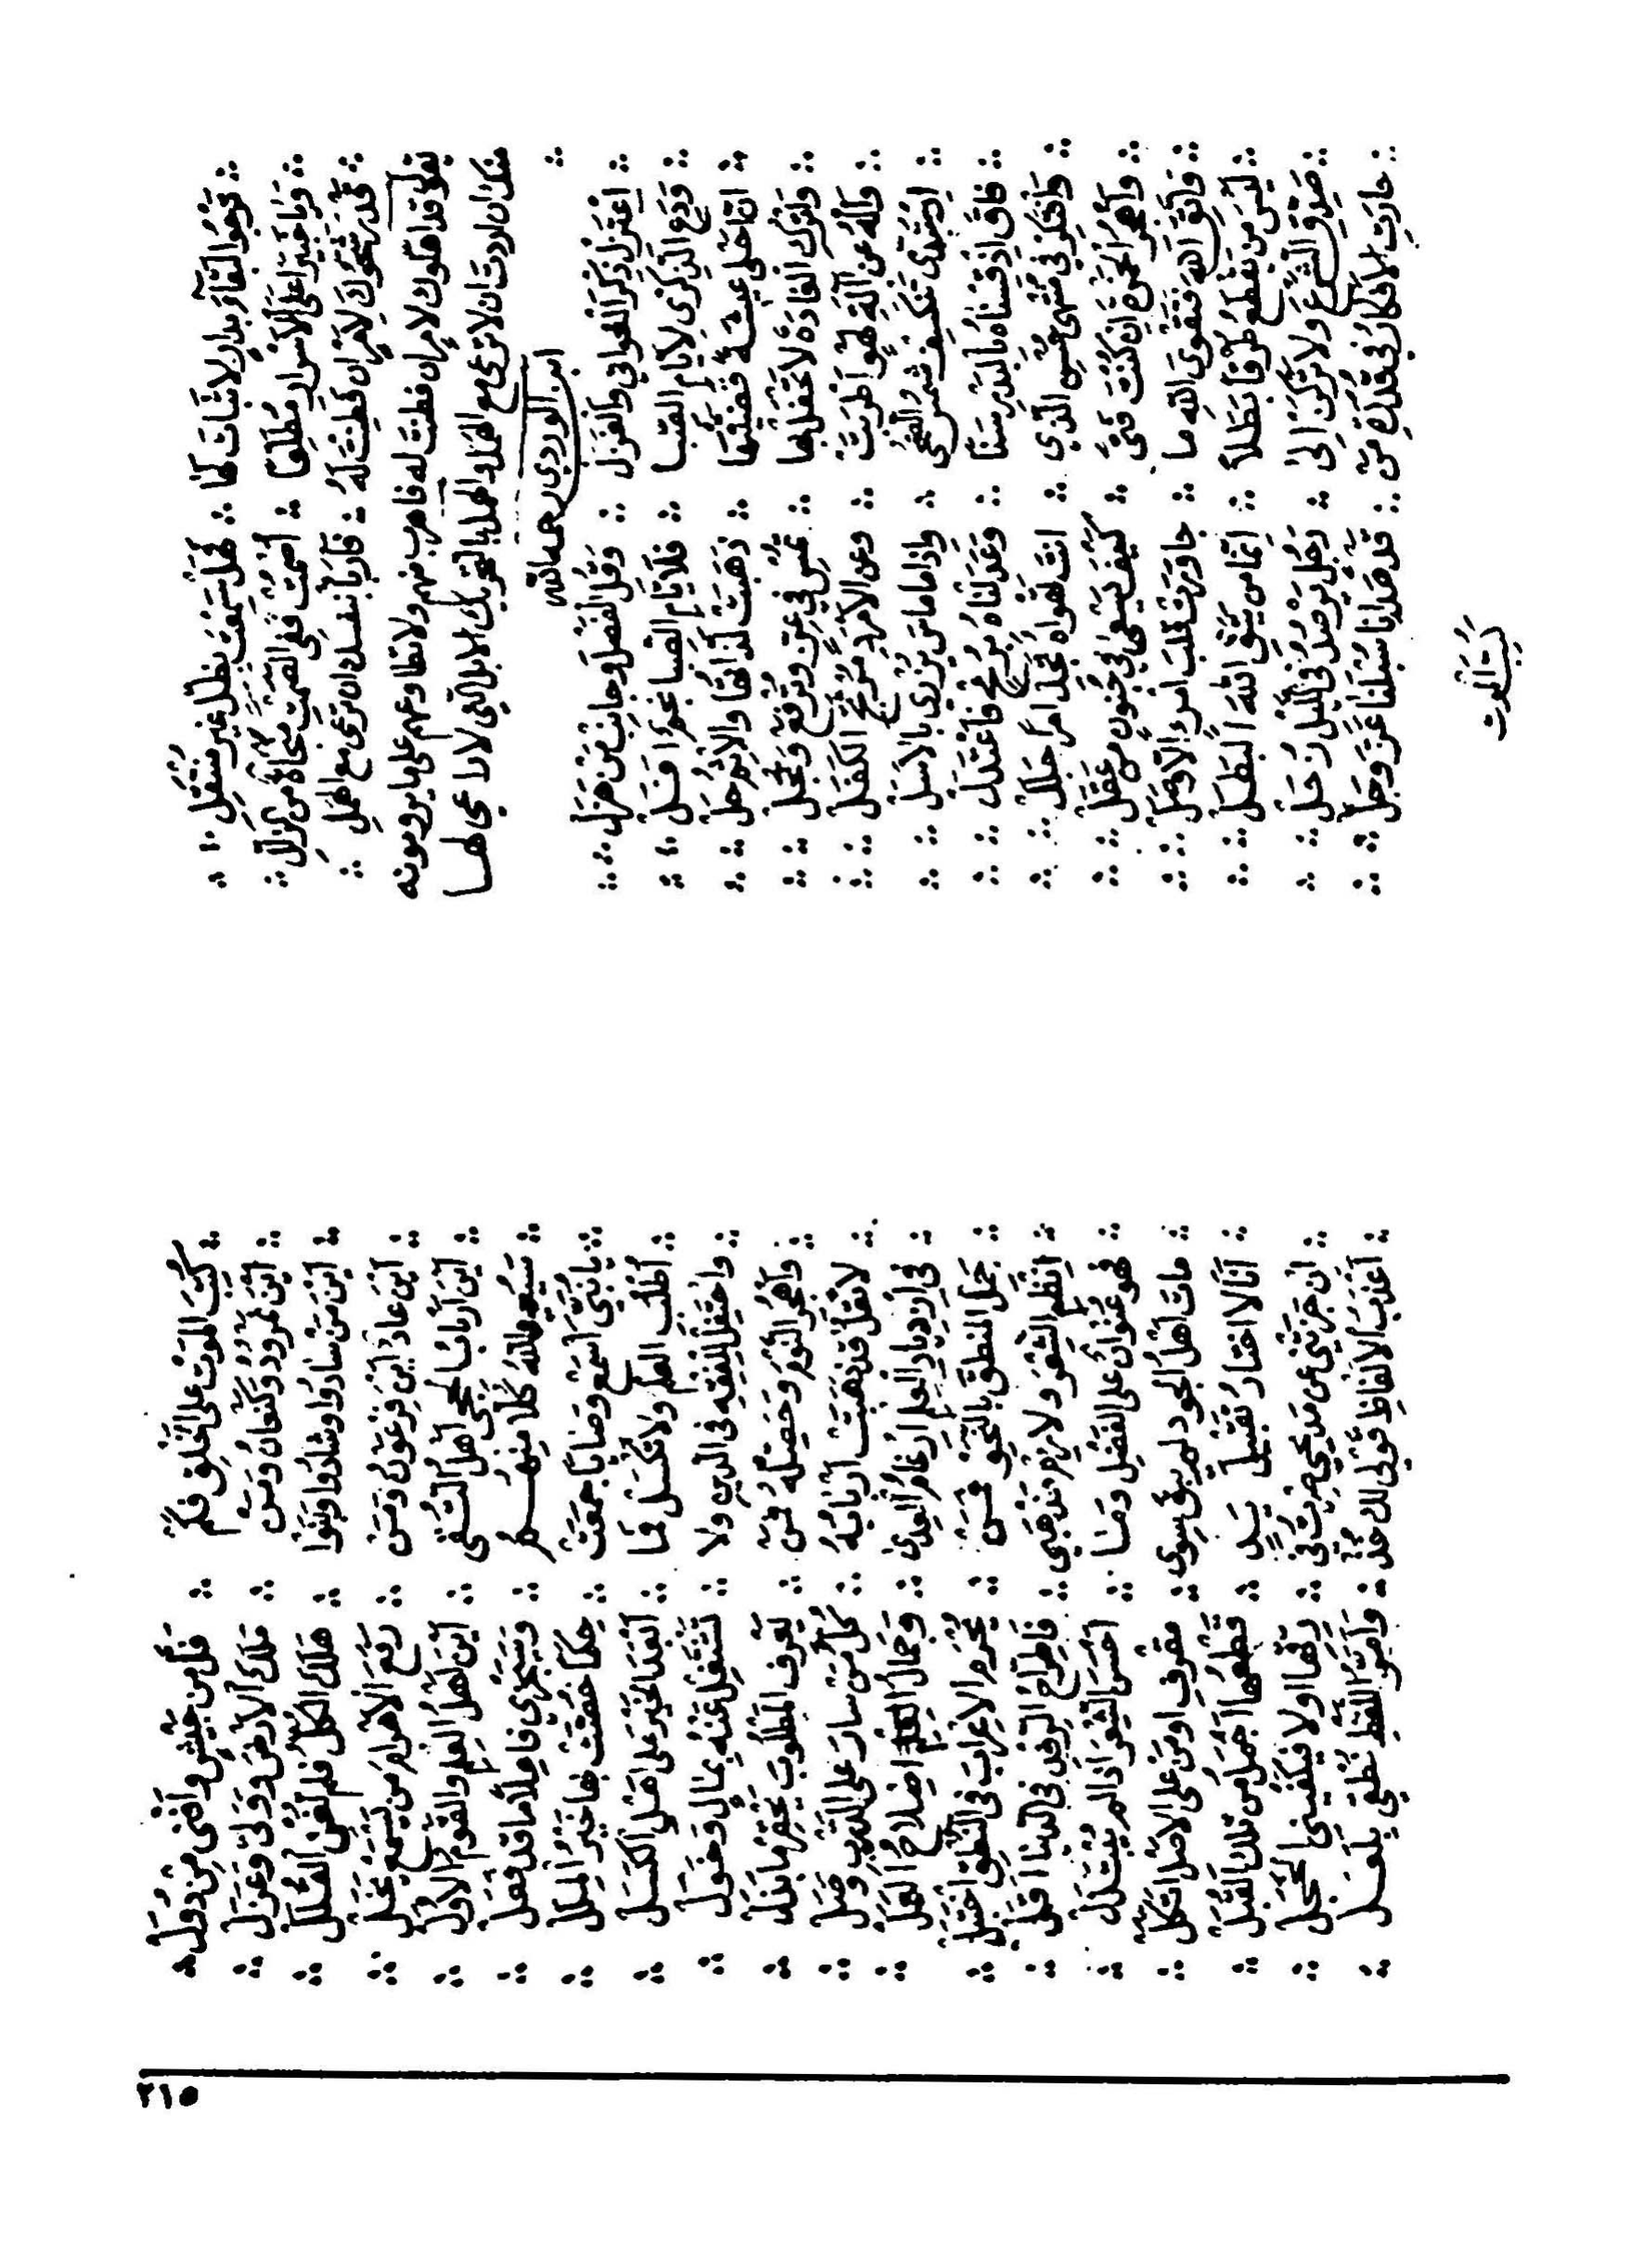 تَرْجُو الْبَقَآءَ بِدَارٍ لَا ثَبَاتَ لَهَا ∴ فَهَلْ سَمِعْتَ بِظِلٍّ غَيْرِ مُنْتَقِلِ
وَيَا خَبِيرًا عَلَى الْأَسْرَارِ مُطَّلِعًا ∴ اُصْمُتْ فَفِى الصَّمْتِ مَنْجَاةٌ مِنَ الزَّلَلِ
قَدْ رَشَّحُوكَ لِأَمْرٍ إِنْ فَطِنْتَ لَهُ ∴ فَارْبَأْ بِنَفْسِكَ أن ترعى مع الهَمَلِ
يقول قد اهلوك لامر ان فطنت له فاهرب منهم ولا تطاوعهم على ما يرومونه
منك ان اردت ان لا ترعى مع الهمل والهمل بالتحريك الابل التي لا راعي لهـا
ابن الوردي رحمه الله
اِعْتَزِلْ ذِكْرَ الْغَوَانِي وَالْغَزَلْ ∴ وَقُلِ الْفَصْلَ وَجَانِبْ مَنْ هَزَلْ
وَدَعِ الذِّكْرَى لِأَيَّامِ الصِّبَا ∴ فَلِأَيَّامِ الصِّبَا نَجْمٌ أَفَلْ
إِنَّ أَحْلَى عِيشَةٍ قَضَيْتُهَا ∴ ذَهَبَتْ لَذَّاتُهَا وَالْإِثْمُ حَلْ
وَاتْرُكِ الْغَادَةَ لَا تَحْفَلْ بِهَا ∴ تُمْسِ فِي عِزٍّ وَتُرْفَعْ وَتُجَلْ
وَالْهُ عَنْ آلَةِ لَهْوٍ أَطْرَبَتْ ∴ وعن الأَمْرَدِ مُرْتَجِّ الكَفَلْ
إِنْ تَبَدَّى تَنْكَسِفْ شَمْسُ الضُّحَى ∴ وَإِذَا مَا مَاسَ يُزْرِي بِالْأَسَلْ
فَاقَ إِذْ قِسْنَاهُ بِالْبَدْرِ سَنًا ∴ وَعَدَلْنَاهُ بِرُمْحٍ فَاعْتَدَلْ
وَافْتَكِرْ فِي مُنْتَهَى حُسْنِ الَّذِي ∴ أنْتَ تَهْوَاهُ تَجِدْ أَمْرًا جَلَلْ
وَاهْجُرِ الْخَمْرَةَ إِنْ كُنْتَ فَتًى ∴ كَيْفَ يَسْعَى فِي جُنُونٍ مَنْ عَقَلْ
وَاتَّقِ اللهَ فَتَقْوَى اللهِ مَا ∴ جَاوَرَتْ قَلْبَ امْرِئٍ إِلَّا وَصَلْ
لَيْسَ مَنْ يَقْطَعُ طُرْقًا بَطَلًا ∴ إِنَّمَا مَنْ يَتَّقِ اللهَ الْبَطَلْ
صَدِّقِ الشَّرْعَ وَلَا تَرْكَنْ إِلَى ∴ رَجُلٍ يَرْصُدُ فِي اللَّيْلِ زُحَلْ
حَارَتِ الْأَفْكَارُ فِي قُدْرَةِ مَنْ ∴ قَدْ هَدَانَا سُبْلَنَا عَزَّ وَجَلْ
كُتِبَ الْمَوْت
كُتِبَ الْمَوْتُ عَلَى الْخَلْقِ فَكَمْ ∴ فَلَّ مِنْ جَيْشٍ وَأَفْنَى مِنْ دُوَلْ
أَيْنَ نَمْرُودُ وَكَنْعَانُ وَمَنْ ∴ مَلَكَ الْأَرْضَ وَوَلَّى وَعَزَلْ
أَيْنَ مَنْ سَادُوا وَشَادُوا وَبَنَوْا ∴ هَلَكَ الْكُلُّ فَلَمْ تُغْنِ الْقُلَلْ
أَيْنَ عَادٌ أَيْنَ فِرْعَوْنُ وَمَنْ ∴ رَفَعَ الْأَهْرَامَ مَنْ يَسْمَعْ يَخَلْ
أَيْنَ أَرْبَابُ الْحِجَى أَهْلُ التُّقَى ∴ أَيْنَ أَهْلُ الْعِلْمِ وَالْقَوْمُ الْأُوَلْ
سَيُعِيدُ اللهُ كُلًّا مِنْهُـمْ ∴ وَسَيَجْزِي فَاعِلًا مَا قَدْ فَعَلْ
يَا بُنَيَّ اسْمَعْ وَصَايَا جَمَعَتْ ∴ حِكَمًا خُصَّتْ بِهَا خَيْرُ الْمِلَلْ
اُطْلُبِ الْعِلْمَ وَلَا تَكْسَلْ فَمَا ∴ أَبْعَدَ الْخَيْرَ عَلَى أَهْلِ الْكَسَلْ
وَاحْتَفِلْ لِلْفِقْهِ فِى الدِّينِ وَلَا ∴ تَشْتَغِلْ عَنْهُ بِمَالٍ وَخَوَلْ
وَاهْجُرِ النَّوْمَ وَحَصِّلْهُ فَمَنْ ∴ يَعْرِفِ الْمَطْلُوبَ يَحْقِرْ مَا بَذَلْ
لَا تَقُلْ قَدْ ذَهَبَتْ أَرْبَابُهُ ∴ كُلُّ مَنْ سَارَ عَلَى الدَّرْبِ وَصَلْ
فِى ازْدِيَادِ الْعِلْمِ إِرْغَامُ الْعِدَى ∴ وَجَمَالُ الْعِلْمِ إِصْلَاحُ الْعَمَلْ
جَمِّلِ الْمَنْطِقَ بِالنَّحْوِ فَمَنْ ∴ يُحْرَمِ الْإِعْرَابَ فِى النُّطْقِ اخْتَبَلْ
اِنْظِمِ الشِّعْرَ وَلَازِمْ مَذْهَبِى ∴ فَاطِّرَاحُ الرِّفْدِ فِى الدُّنْيَا أَقَلْ
فَهُوَ عُنْوَانٌ عَلَى الْفَضْلِ وَمَا ∴ أَحْسَنَ الشِّعْرَ إِذَا لَمْ يُبْتَذَلْ
مَاتَ أَهْلُ الْجُودِ لَمْ يَبْقَ سِوَى ∴ مُقْرِفٍ أَوْ مَنْ عَلَى الْأَصْلِ اتَّكَلْ
أَنَا لَا أَخْتَارُ تَقْبِيلَ يَدٍ ∴ قَطْعُهَا أَجْمَلُ مِنْ تِلْكَ الْقُبَلْ
إِنْ جَزَتْنِى عَنْ مَدِيحِى صِرْتُ فِى ∴ رِقِّهَا أَوْ لَا فَيَكْفِينِى الْخَجَلْ
أَعْذَبُ الْأَلْفَاظِ قَوْلِى لَكَ خُذْ ∴ وَأَمَرُّ اللَّفْظِ نُطْقِي بِلَعَـلْ
٢١٥